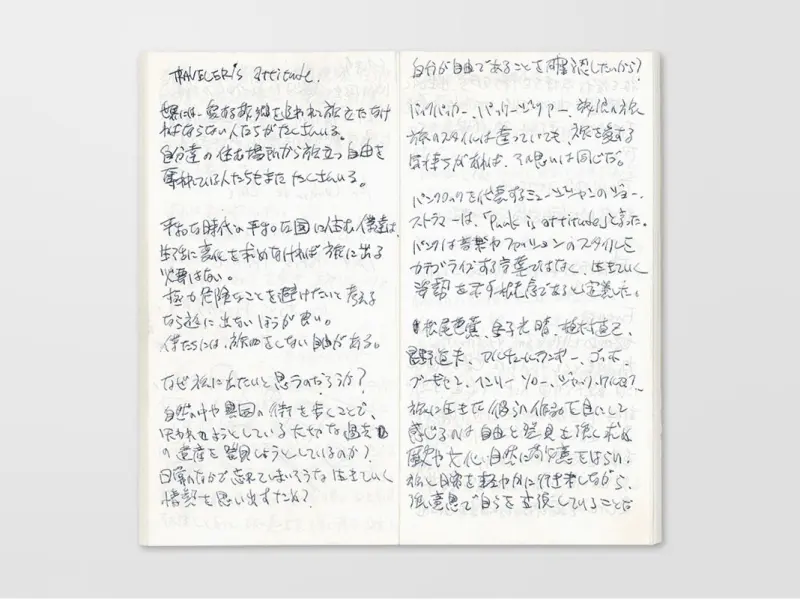 TRAVELER's attitude.
世界には、愛する故郷を追われて旅立たなけ
ればならない人たちがたくさんいる。
自分達の住む場所から旅立つ自由を
奪われている人たちもまた たくさんいる。
平和な時代の平和な国に住む僕達は、
生活に変化を求めなければ 旅に出る
必要はない。
極力危険なことを避けたいと考える
なら旅に出ないほうが良い。
僕たちには、旅をしない自由がある。
なぜ旅に出たいと思うのだろうか?
自然の中や異国の街を歩くことで、
ようとしている大切な過去
の遺産を発見しようとしているのか?
日常のなかで忘れてしまいそうな 生きていく
情熱を思い出すため?
自分が自由であることを確認したいから?
バックパッカー、パッケージツアー、放浪の旅
旅のスタイルは違っていても、旅を愛する
気持ちがあれば、その思いは同じだ。
パンクロックを代表するミュージシャンのジョー・
ストラマーは、「Punk is attitude」と言った。
パンクは音楽やファッションのスタイルを
カテゴライズする言葉ではなく、生きていく
姿勢を示す であると定義した。
松尾芭蕉、金子光晴、植村直己、
星野道夫、 ゴッホ、
ヘンリー・ソロー、ジャック・ケルアック?
旅に生きた彼らの作品を目にして
感じるのは 自由と発見を強く求め
歴史や文化、自然に敬意をはらい、
旅と日常を軽やかに行き来しながら、
強い意思で自らを していることだ